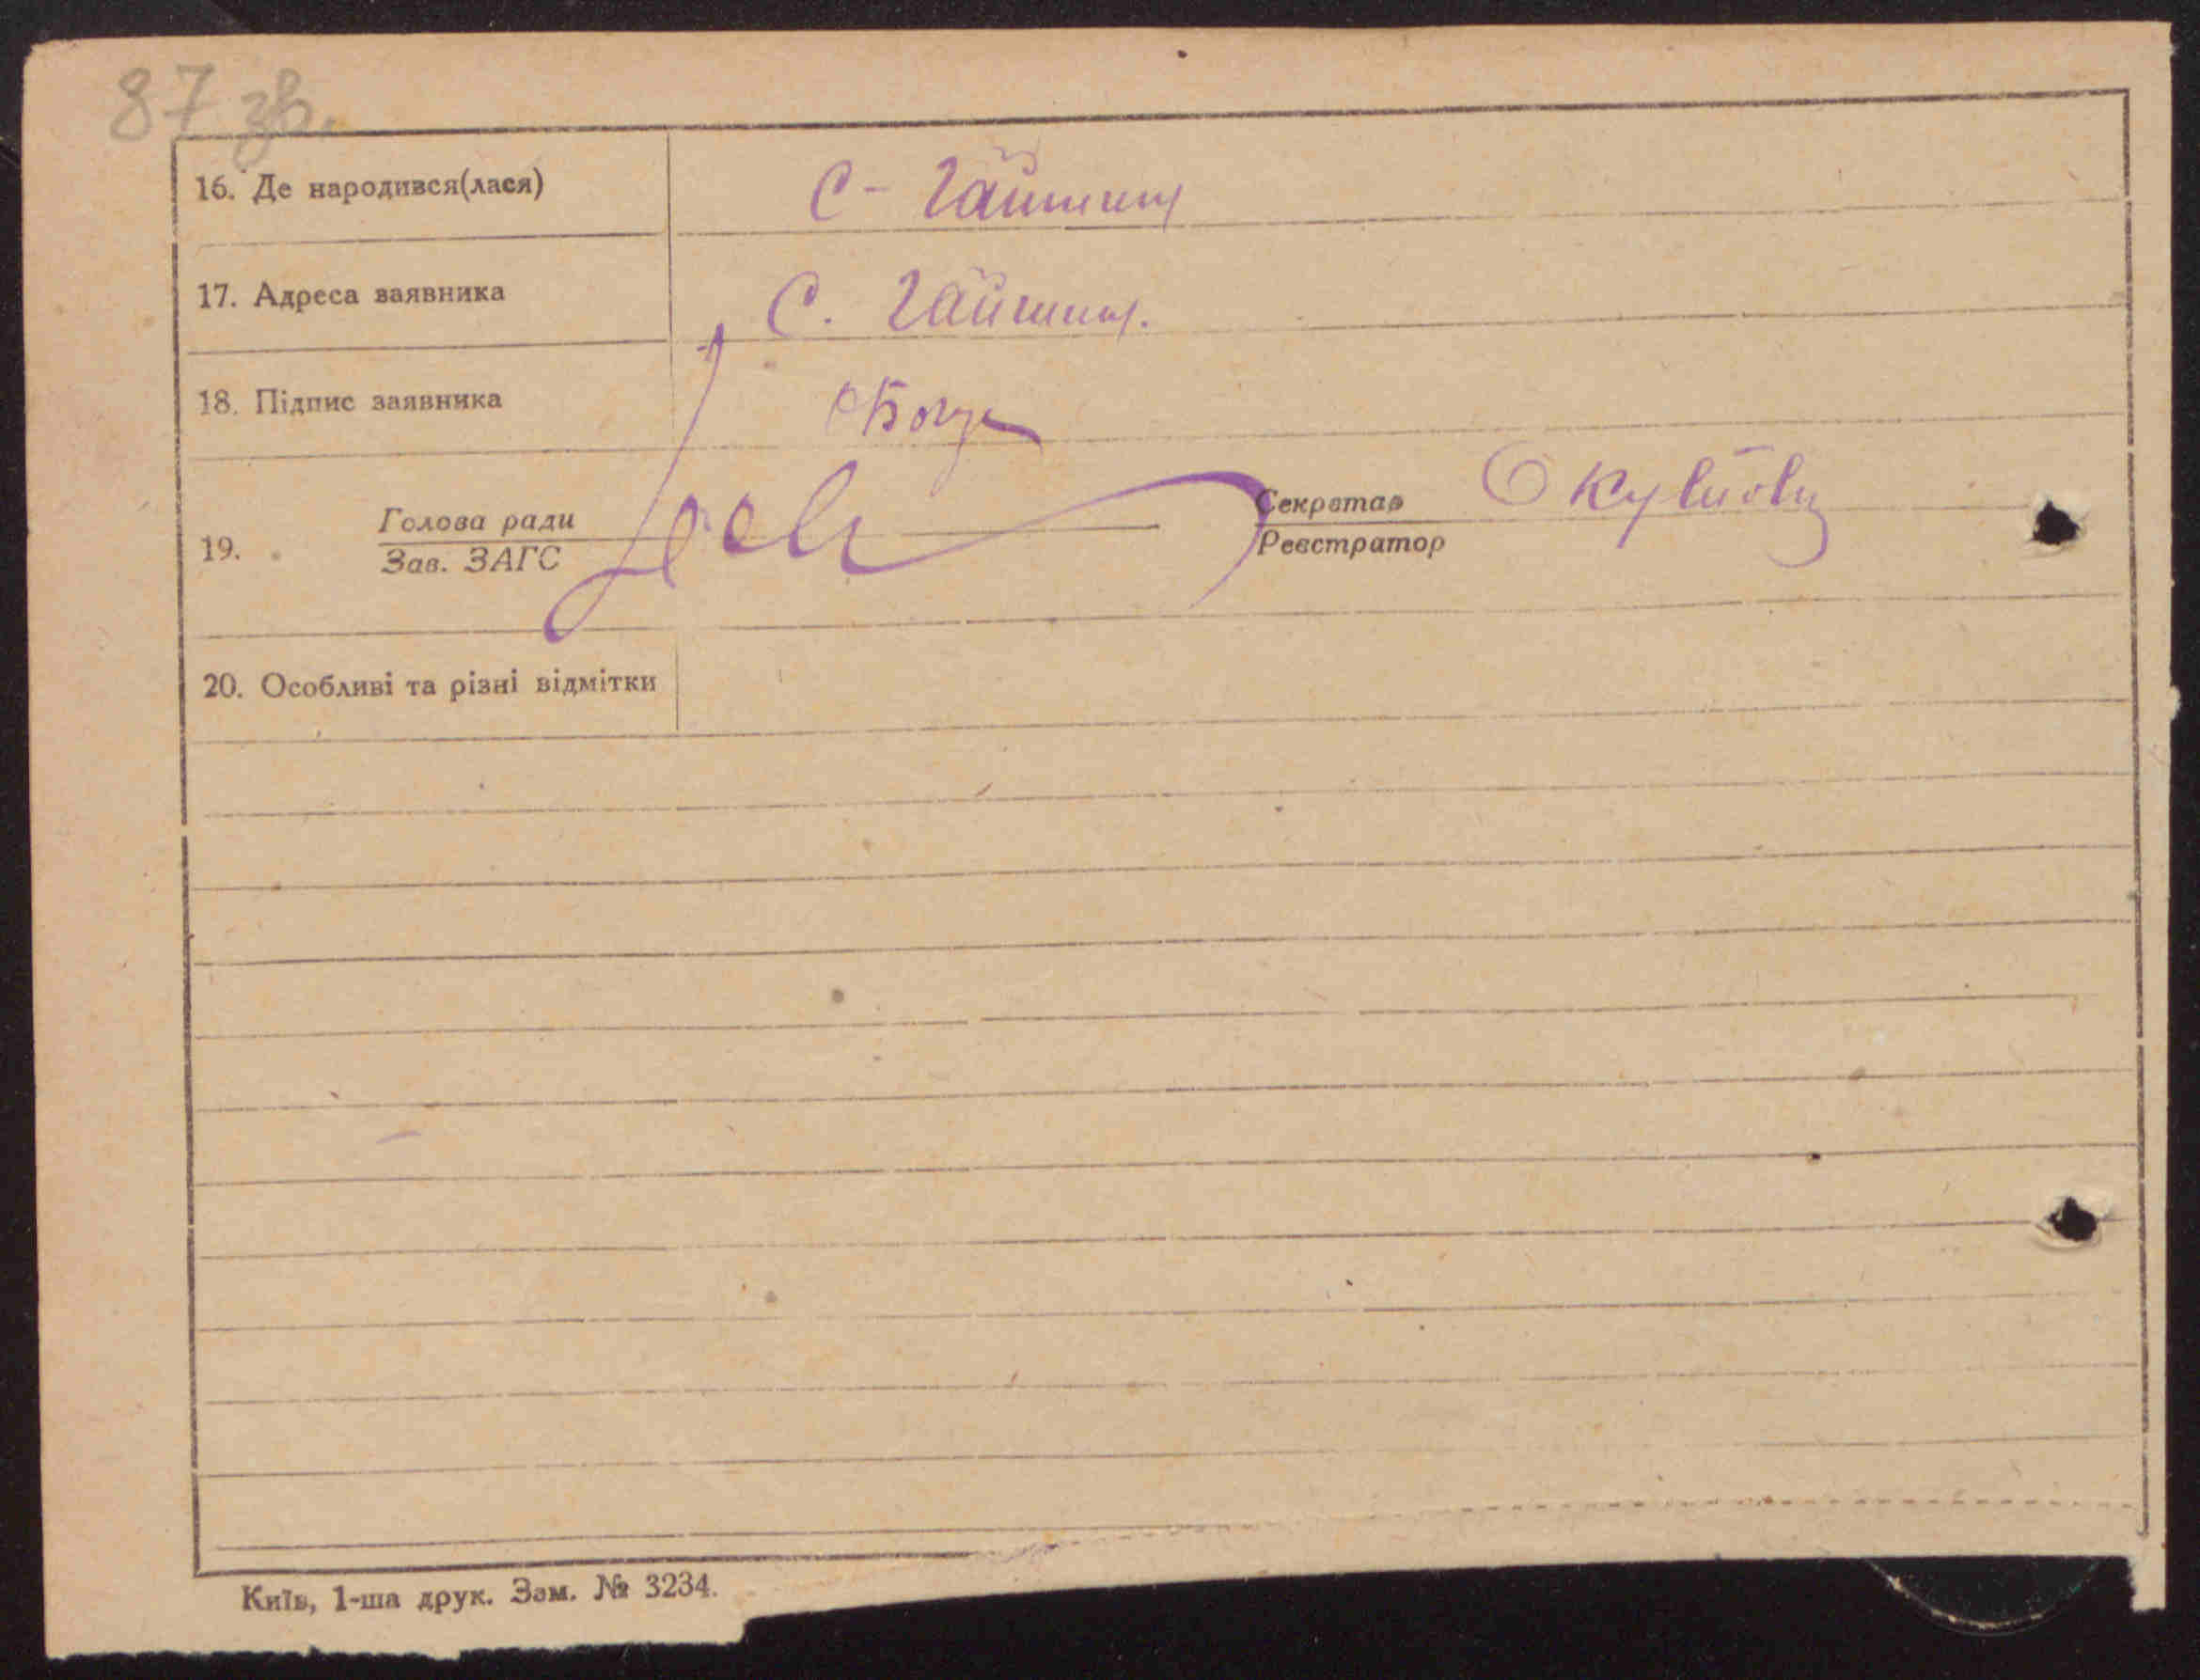 87 зв.
16. Де народився(лася) С- Гайшин
17. Адреса заявника С. Гайшин.
18. Підпис заявника
19. Голова ради Секретар
Зав. ЗАГС Реєстратор
20. Особливі та різні відмітки
Київ, 1-ша друк. Зам. № 3234.